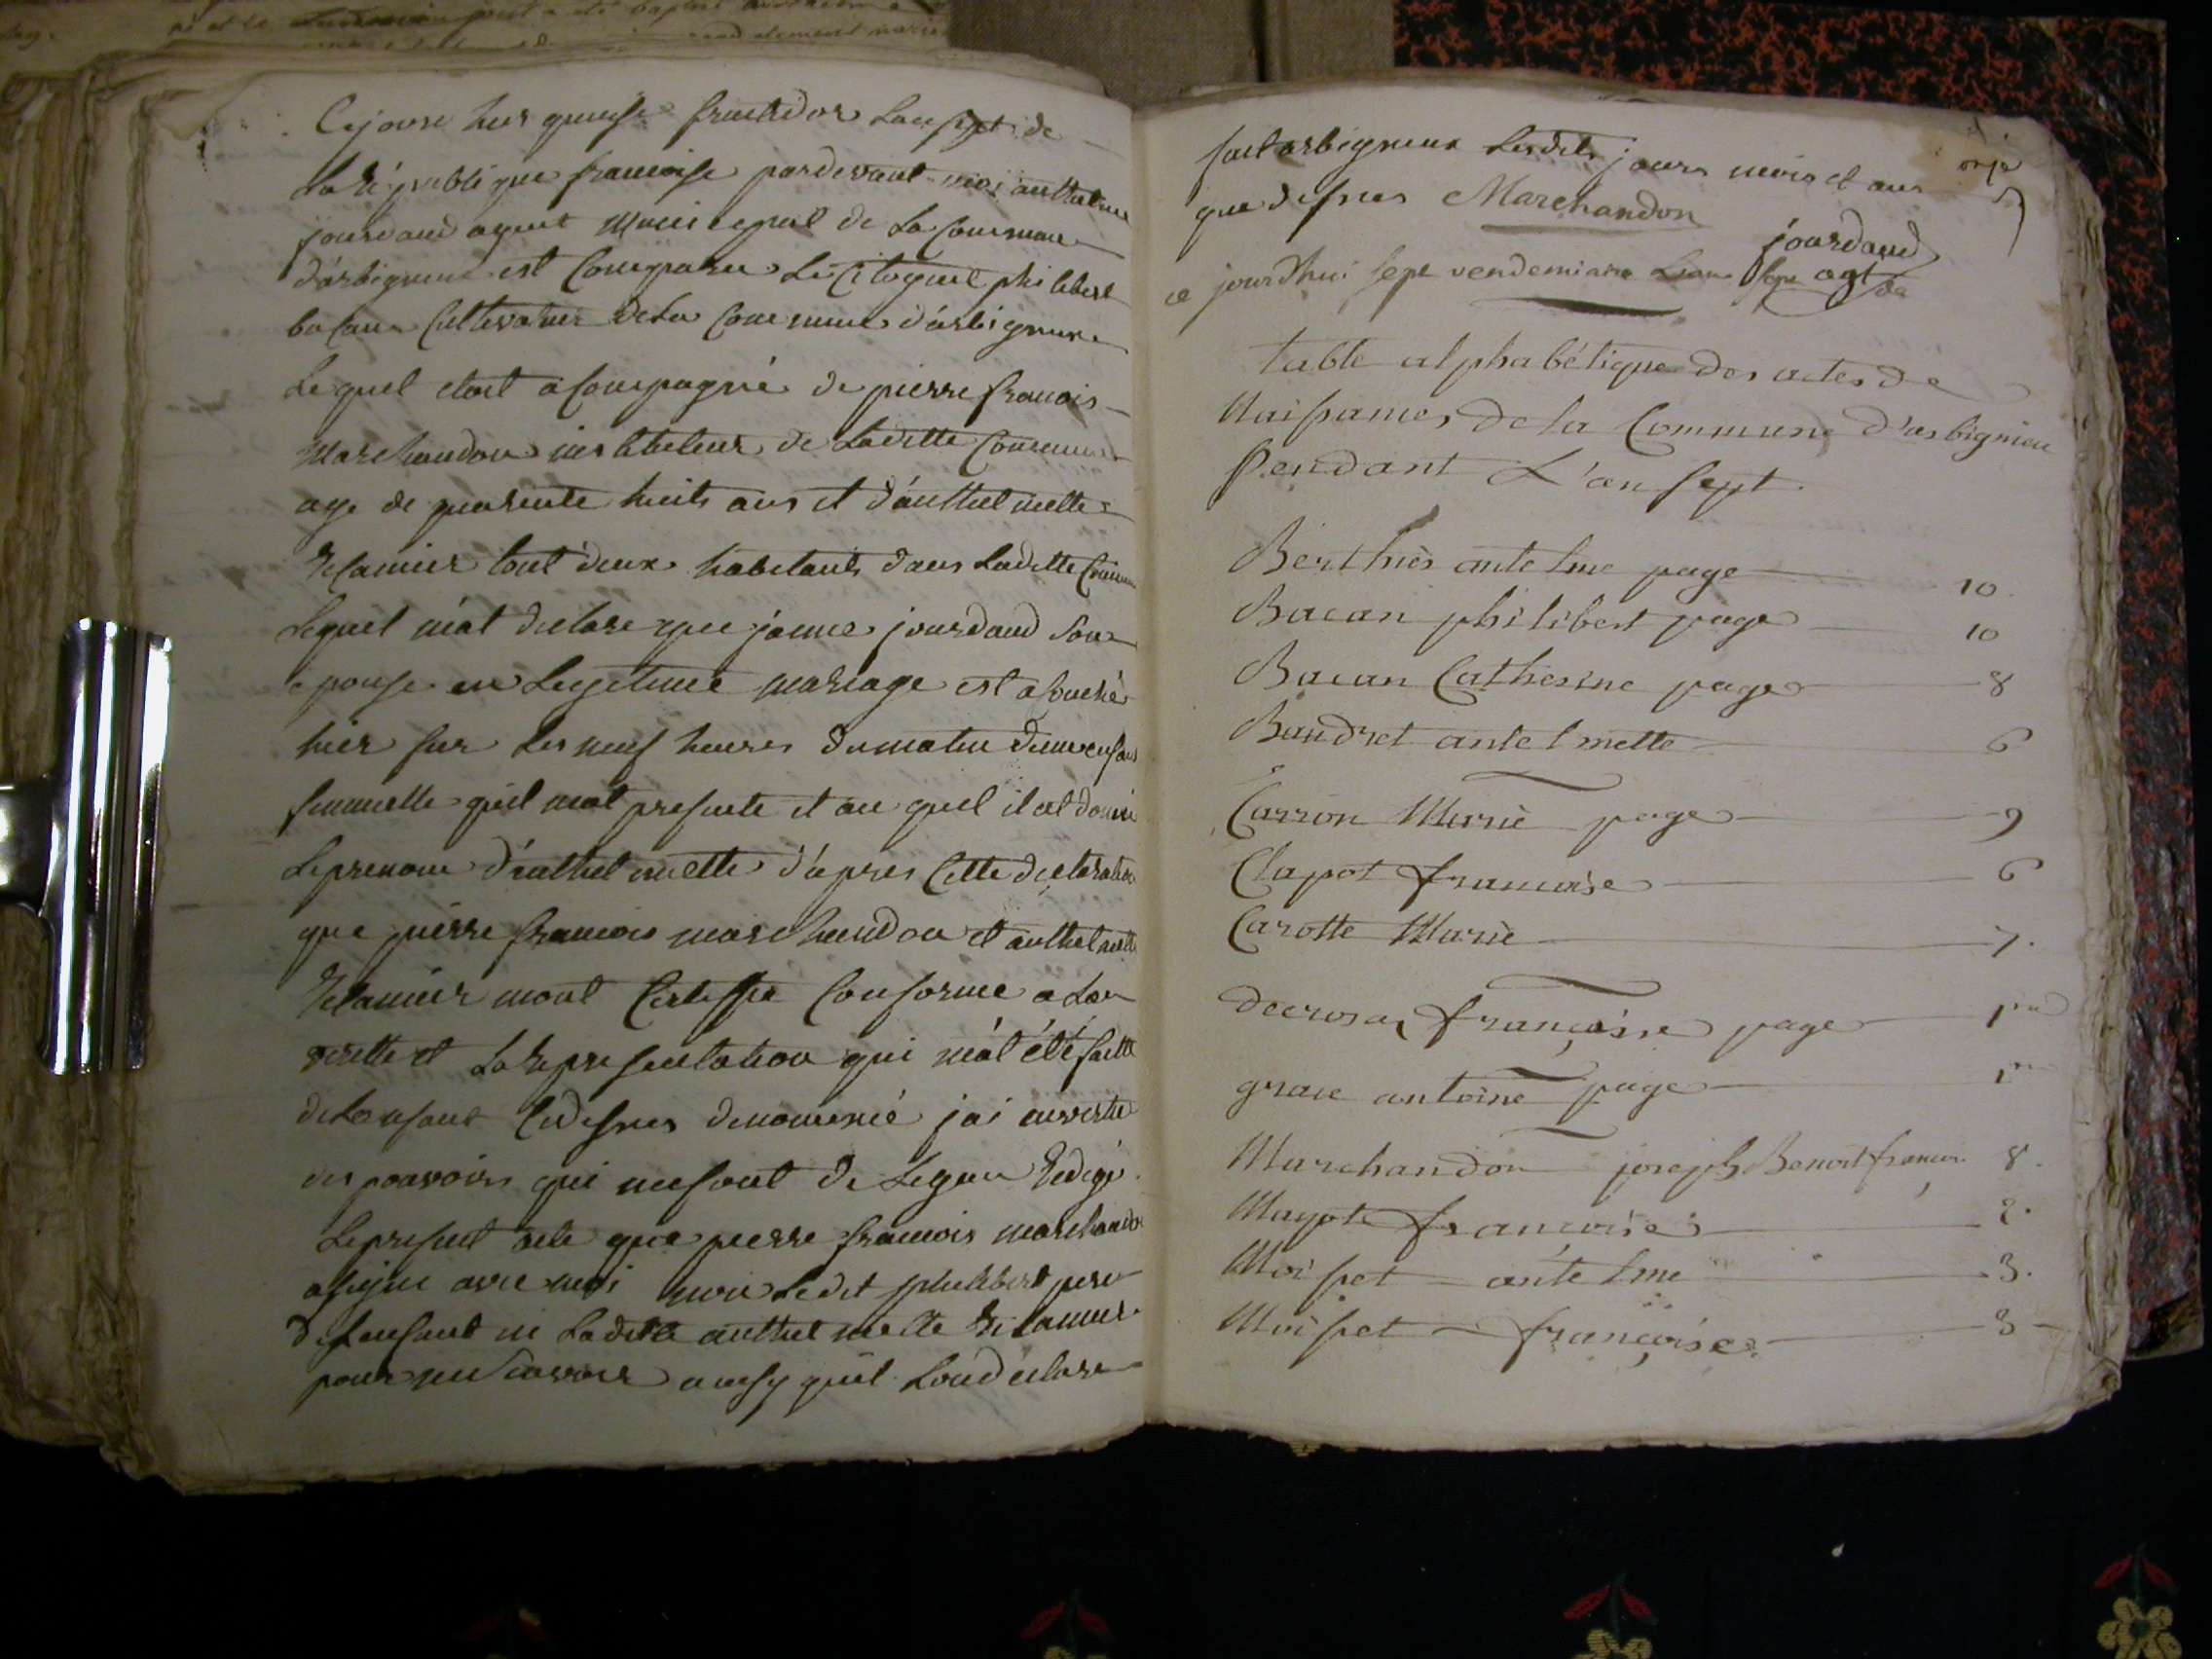 Cejourd huis quinse fructidor lan sept de
La République francoise pardevant moi anthelme
jourdand agent municepal de La Commune
d'arbigneux est Comparu Le Citoyent philibert
bacan Cultivateur de La Commune d'arbigneux
Lequel etoit aCompagné de pierre francois
Marchandon instituteur de Laditte Commune
age de quarente huits ans et d'anthelmette
Tout deux habitants dans Laditte Commune
Lequel m'at declare que jeanne jourdand Son
epouse en Legitime mariage est acouché
hier sur les neuf heures du matin d'une enfant
fumelle quil mat presente et au quel il at donné
Le prenom d'anthelmette d'apres Cette declaration
que pierre francois marchandon et anthelmette
mont Certiffie Conforme a La
veritte et La representation qui m'at été faitte
de Lenfant Cidesus denommé jai en vertu
des pouvoirs qui me sont de Legue Redigé
Le present acte que pierre francois marchandon
a signe avec moi non Ledit philibert pere
de Lenfant ni Laditte anthelmette
pour ne Savoir ainsy quil Lon declare
fait arbigneux Lesdits jours mois et ans
que desus Marchandon
jourdand
agt
ce jourd'hui sept vendemiaire Lan sept de
table alphabétique des actes de
Naissances de la Commune d'arbignieu
Pendant L'an sept.
Berthier antelme page 10.
Bacan philibert page 10
Bacan Catherine page 8
Baudret antelmette 6
Carron Marie page 9
Clapot francoise 6
Carotte Marie 7.
decroso françoise page 1re
grace antoine page 1re
Marchandon joseph Benoit francois 8.
Mayote francoise 2.
Moisset antelme 3.
Moisset françoise 3